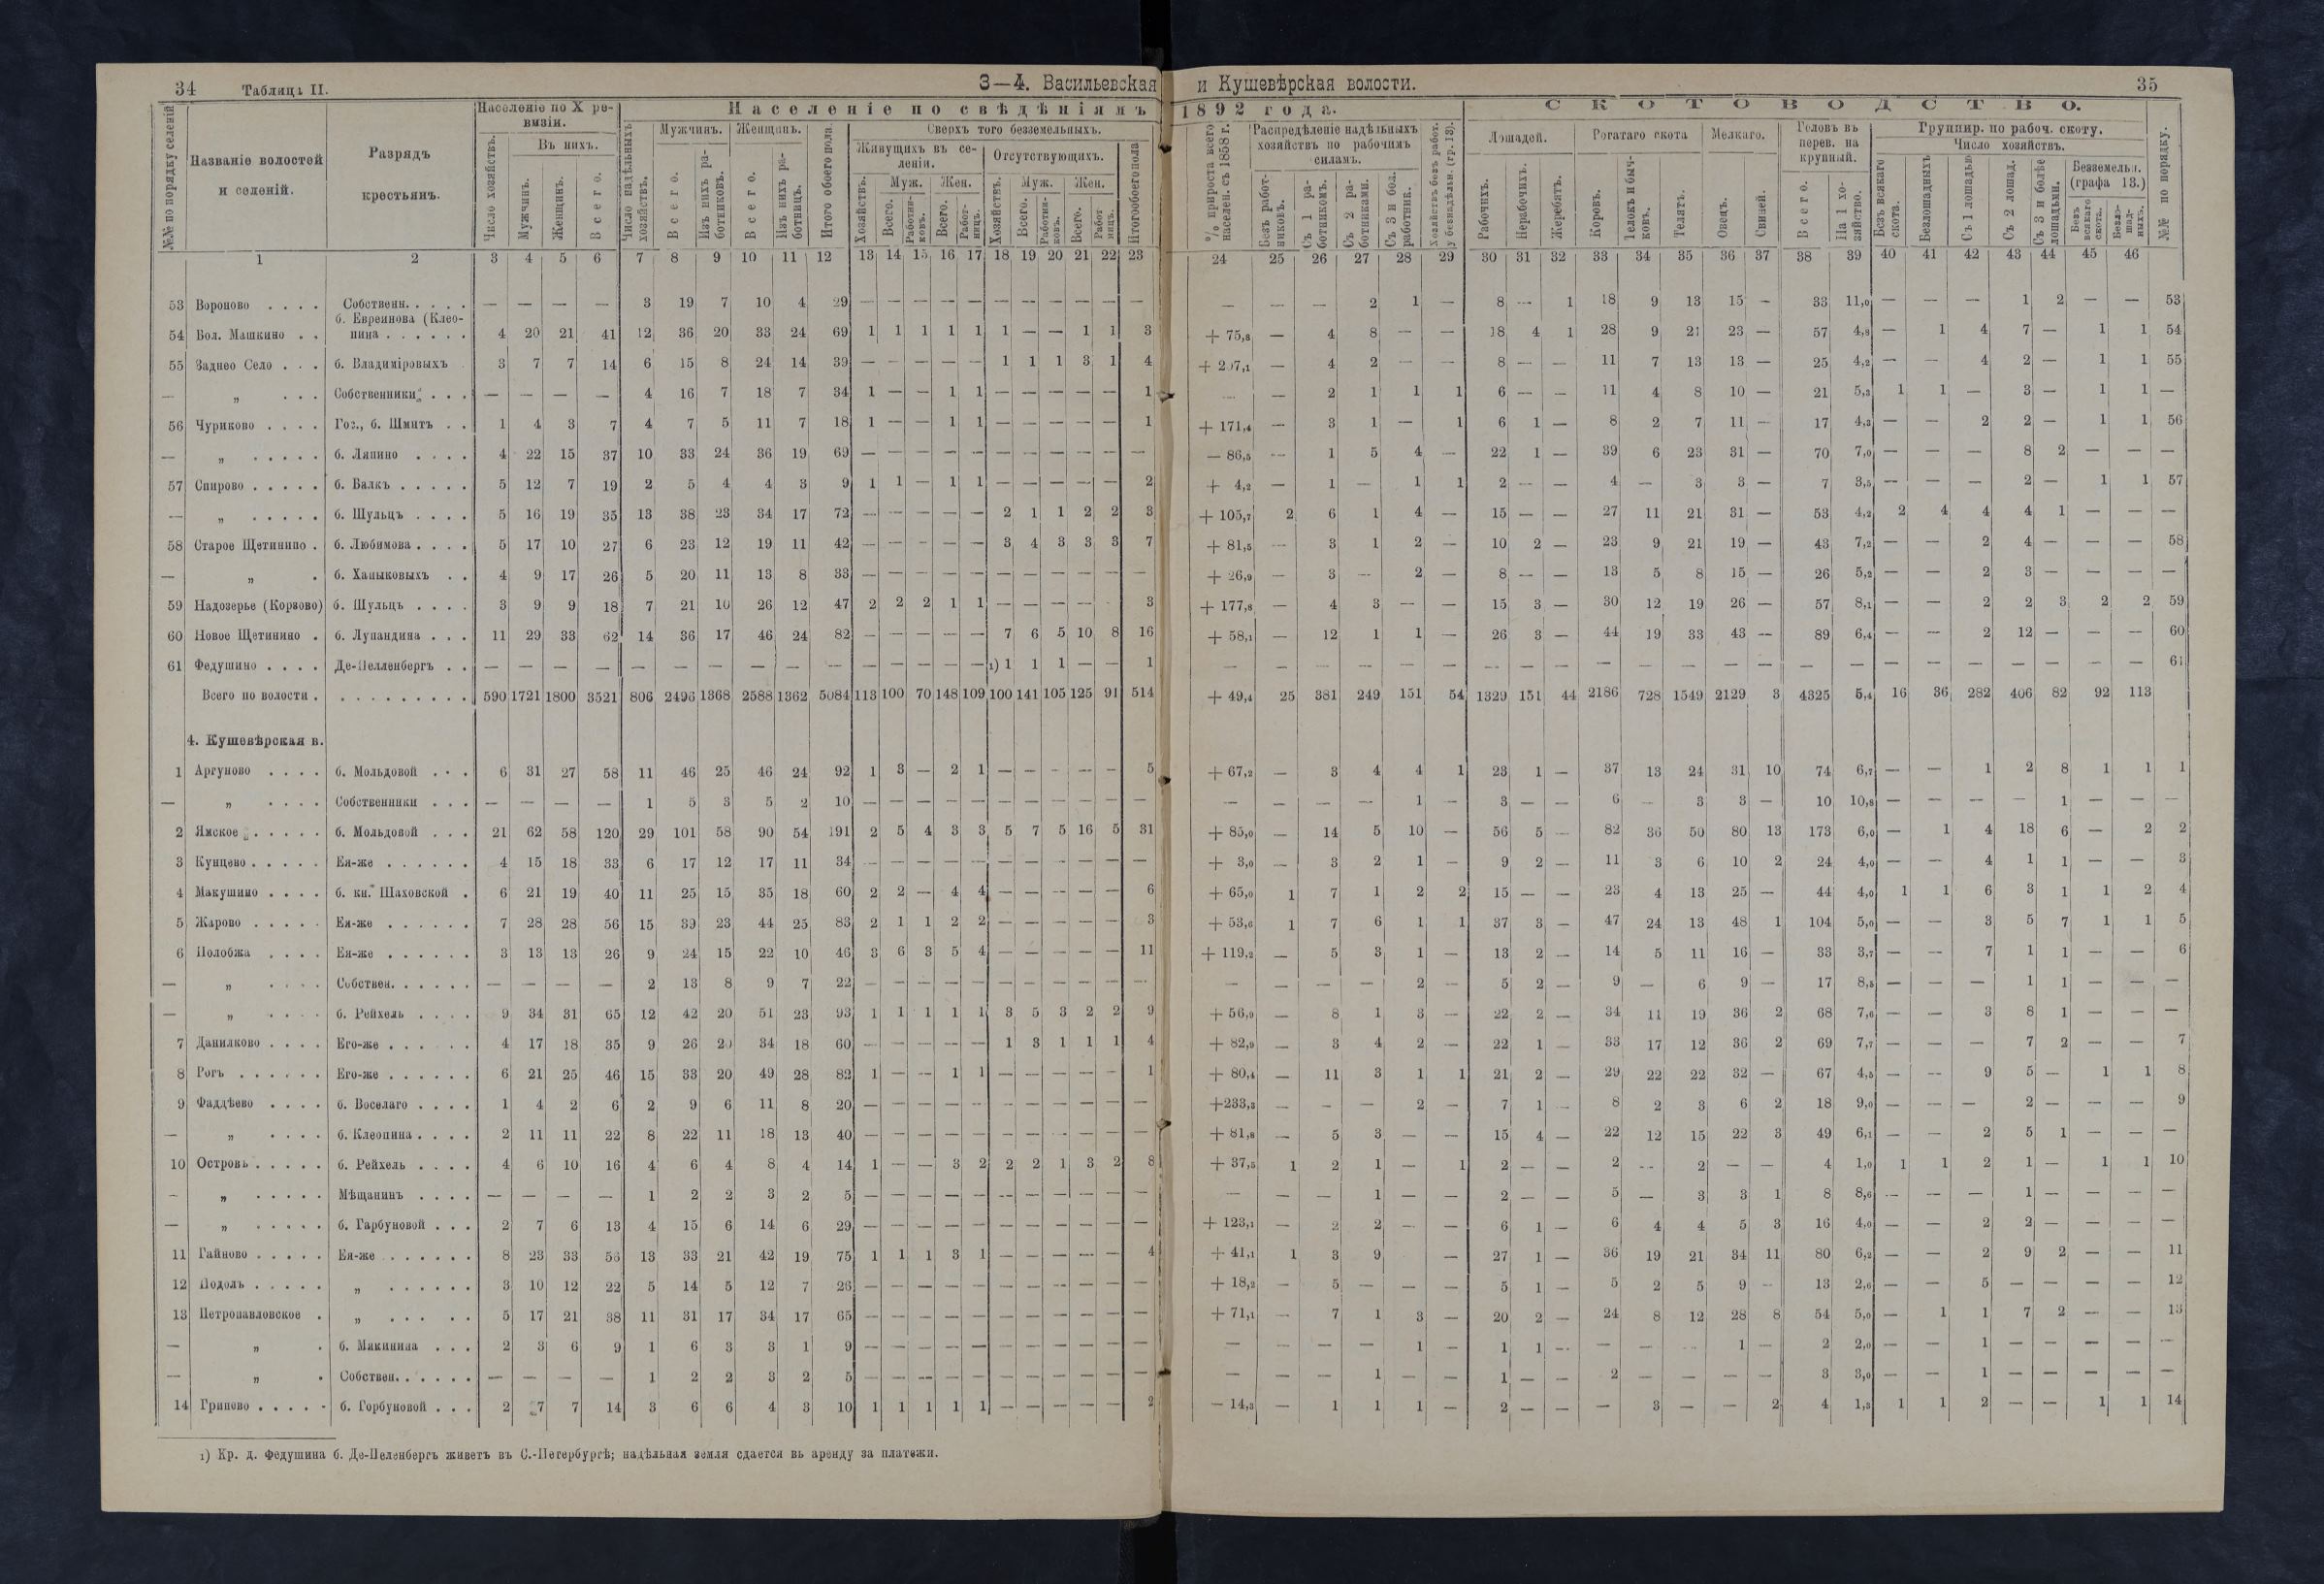 34 Таблица II. 3—4. Васильевская и Кушевѣрская волости. 35
Населеніе по X ревизіи. Населеніе по свѣдѣніямъ 1892 года. СКОТОВОДСТВО.
№№ по порядку селеній
Названіе волостей и селеній.
Разрядъ крестьянъ.
Число хозяйствъ. Въ нихъ. Мужчинъ. Женщинъ. Всего.
Число надѣльныхъ хозяйствъ. Мужчинъ. Всего. Изъ нихъ работниковъ. Женщинъ. Всего. Изъ нихъ работницъ. Итого обоего пола.
Сверхъ того безземельныхъ. Живущихъ въ селеніи. Хозяйствъ. Муж. Всего. Работниковъ. Жен. Всего. Работницъ. Отсутствующихъ. Хозяйствъ. Муж. Всего. Работниковъ. Жен. Всего. Работницъ. Итого обоего пола
% прироста всего населен. съ 1858 г. Распредѣленіе надѣльныхъ хозяйствъ по рабочимъ силамъ. Безъ работниковъ. Съ 1 работникомъ. Съ 2 работниками. Съ 3 и бол. работник. Хозяйствъ безъ работ. у безнадѣльн. (гр. 13).
Лошадей. Рабочихъ. Нерабочихъ. Жеребятъ. Рогатаго скота Коровъ. Телокъ и бычковъ. Телятъ. Мелкаго. Овецъ. Свиней. Головъ въ перев. на крупный. Всего. На 1 хозяйство.
Группир. по рабоч. скоту. Число хозяйствъ. Безъ всякаго скота. Безлошадныхъ Съ 1 лошадью Съ 2 лошад. Съ 3 и болѣе лошадьми. Безземельн. (графа 13.) Безъ всякаго скота. Безлошадныхъ. №№ по порядку.
1 2 3 4 5 6 7 8 9 10 11 12 13 14 15 16 17 18 19 20 21 22 23 24 25 26 27 28 29 30 31 32 33 34 35 36 37 38 39 40 41 42 43 44 45 46
53 Вороново . . . . Собственн. . . . . — — — — 3 19 7 10 4 29 — — — — — — — — — — — — — — 2 1 — 8 — 1 18 9 13 15 — 33 11,0 — — — 1 2 — — 53
54 Вол. Машкино . . б. Евреинова (Клеопина . . . . . . 4 20 21 41 12 36 20 33 24 69 1 1 1 1 1 1 — — 1 1 3 + 75,8 — 4 8 — — 18 4 1 28 9 21 23 — 57 4,8 — 1 4 7 — 1 1 54
55 Заднео Село . . . б. Владиміровыхъ 3 7 7 14 6 15 8 24 14 39 — — — — — 1 1 1 3 1 4 + 207,1 — 4 2 — — 8 — — 11 7 13 13 — 25 4,2 — — 4 2 — 1 1 55
— „ . . . Собственники . . . — — — — 4 16 7 18 7 34 1 — — 1 1 — — — — — 1 — — 2 1 1 1 6 — — 11 4 8 10 — 21 5,3 1 1 — 3 — 1 1 —
56 Чуриково . . . . Гос., б. Шмитъ . . 1 4 3 7 4 7 5 11 7 18 1 — — 1 1 — — — — — 1 + 171,4 — 3 1 — 1 6 1 — 8 2 7 11 — 17 4,3 — — 2 2 — 1 1 56
— „ . . . . . б. Ляпино . . . . 4 22 15 37 10 33 24 36 19 69 — — — — — — — — — — — — 86,5 — 1 5 4 — 22 1 — 39 6 23 31 — 70 7,0 — — — 8 2 — — —
57 Спирово . . . . . б. Валкъ . . . . . 5 12 7 19 2 5 4 4 3 9 1 1 — 1 1 — — — — — 2 + 4,2 — 1 — 1 1 2 — — 4 — 3 3 — 7 3,5 — — — 2 — 1 1 57
— „ . . . . . б. Шульцъ . . . . 5 16 19 35 13 38 23 34 17 72 — — — — — 2 1 1 2 2 3 + 105,7 2 6 1 4 — 15 — — 27 11 21 31 — 53 4,2 2 4 4 4 1 — — —
58 Старое Щетинино . б. Любимова . . . . 5 17 10 27 6 23 12 19 11 42 — — — — — 3 4 3 3 3 7 + 81,5 — 3 1 2 — 10 2 — 23 9 21 19 — 43 7,2 — — 2 4 — — — 58
— „ . б. Ханыковыхъ . . 4 9 17 26 5 20 11 13 8 33 — — — — — — — — — — — + 26,9 — 3 — 2 — 8 — — 13 5 8 15 — 26 5,2 — — 2 3 — — — —
59 Надозерье (Корзово) б. Шульцъ . . . . 3 9 9 18 7 21 10 26 12 47 2 2 2 1 1 — — — — — 3 + 177,8 — 4 3 — — 15 3 — 30 12 19 26 — 57 8,1 — — 2 2 3 2 2 59
60 Новое Щетинино . б. Лупандина . . . 11 29 33 62 14 36 17 46 24 82 — — — — — 7 6 5 10 8 16 + 58,1 — 12 1 1 — 26 3 — 44 19 33 43 — 89 6,4 — — 2 12 — — — 60
61 Федушино . . . . Де-Пелленбергъ . . — — — — — — — — — — — — — — — 1) 1 1 1 — — 1 — — — — — — — — — — — — — — — — — — — — — — — 61
Всего по волости . . . . . . . . . . 590 1721 1800 3521 806 2496 1368 2588 1362 5084 113 100 70 148 109 100 141 105 125 91 514 + 49,4 25 381 249 151 54 1329 151 44 2186 728 1549 2129 3 4325 5,4 16 36 282 406 82 92 113
4. Кушевѣрская в.
1 Аргуново . . . . б. Мольдовой . . . 6 31 27 58 11 46 25 46 24 92 1 3 — 2 1 — — — — — 5 + 67,2 — 3 4 4 1 23 1 — 37 13 24 31 10 74 6,7 — — 1 2 8 1 1 1
— „ . . . . Собственники . . . — — — — 1 5 3 5 2 10 — — — — — — — — — — — — — — — 1 — 3 — — 6 — 3 3 — 10 10,8 — — — — 1 — — —
2 Ямское . . . . . б. Мольдовой . . . 21 62 58 120 29 101 58 90 54 191 2 5 4 3 3 5 7 5 16 5 31 + 85,0 — 14 5 10 — 56 5 — 82 36 50 80 13 173 6,0 — 1 4 18 6 — 2 2
3 Кунцево . . . . . Ея-же . . . . . . 4 15 18 33 6 17 12 17 11 34 — — — — — — — — — — — + 3,0 — 3 2 1 — 9 2 — 11 3 6 10 2 24 4,0 — — 4 1 1 — — 3
4 Макушино . . . . б. кн. Шаховской . 6 21 19 40 11 25 15 35 18 60 2 2 — 4 4 — — — — — 6 + 65,0 1 7 1 2 2 15 — — 23 4 13 25 — 44 4,0 1 1 6 3 1 1 2 4
5 Жарово . . . . . Ея-же . . . . . . 7 28 28 56 15 39 23 44 25 83 2 1 1 2 2 — — — — — 3 + 53,6 1 7 6 1 1 37 3 — 47 24 13 48 1 104 5,0 — — 3 5 7 1 1 5
6 Полобжа . . . . Ея-же . . . . . . 3 13 13 26 9 24 15 22 10 46 3 6 3 5 4 — — — — — 11 + 119,2 — 5 3 1 — 13 2 — 14 5 11 16 — 33 3,7 — — 7 1 1 — — 6
— „ . . . . Собствен. . . . . . — — — — 2 13 8 9 7 22 — — — — — — — — — — — — — — — 2 — 5 2 — 9 — 6 9 — 17 8,5 — — — 1 1 — — —
— „ . . . . б. Рейхель . . . . 9 34 31 65 12 42 20 51 23 93 1 1 1 1 1 3 5 3 2 2 9 + 56,9 — 8 1 3 — 22 2 — 34 11 19 36 2 68 7,6 — — 3 8 1 — — —
7 Данилково . . . . Его-же . . . . . 4 17 18 35 9 26 20 34 18 60 — — — — — 1 3 1 1 1 4 + 82,9 — 3 4 2 — 22 1 — 33 17 12 36 2 69 7,7 — — — 7 2 — — 7
8 Рогъ . . . . . . Его-же . . . . . . 6 21 25 46 15 33 20 49 28 82 1 — — 1 1 — — — — — 1 + 80,4 — 11 3 1 1 21 2 — 29 22 22 32 — 67 4,5 — — 9 5 — 1 1 8
9 Фаддѣево . . . . б. Воселаго . . . . 1 4 2 6 2 9 6 11 8 20 — — — — — — — — — — — +233,3 — — — 2 — 7 1 — 8 2 3 6 2 18 9,0 — — — 2 — — — 9
— „ . . . . б. Клеопина . . . . 2 11 11 22 8 22 11 18 13 40 — — — — — — — — — — — + 81,8 — 5 3 — — 15 4 — 22 12 15 22 3 49 6,1 — — 2 5 1 — — —
10 Островъ . . . . . б. Рейхель . . . . 4 6 10 16 4 6 4 8 4 14 1 — — 3 2 2 2 1 3 2 8 + 37,5 1 2 1 — 1 2 — — 2 — 2 — — 4 1,0 1 1 2 1 — 1 1 10
— „ . . . . . Мѣщанинъ . . . . — — — — 1 2 2 3 2 5 — — — — — — — — — — — — — — 1 — — 2 — — 5 — 3 3 1 8 8,6 — — — 1 — — — —
— „ . . . . . б. Гарбуновой . . . 2 7 6 13 4 15 6 14 6 29 — — — — — — — — — — — + 123,1 — 2 2 — — 6 1 — 6 4 4 5 3 16 4,0 — — 2 2 — — — —
11 Гайново . . . . . Ея-же . . . . . . 8 23 33 56 13 33 21 42 19 75 1 1 1 3 1 — — — — — 4 + 41,1 1 3 9 — 27 1 — 36 19 21 34 11 80 6,2 — — 2 9 2 — — 11
12 Подолъ . . . . . „ . . . . . . 3 10 12 22 5 14 5 12 7 26 — — — — — — — — — — — + 18,2 — 5 — — — 5 1 — 5 2 5 9 — 13 2,6 — — 5 — — — — 12
13 Петропавловское . „ . . . . . 5 17 21 38 11 31 17 34 17 65 — — — — — — — — — — — + 71,1 — 7 1 3 — 20 2 — 24 8 12 28 8 54 5,0 — 1 1 7 2 — — 13
— „ . б. Мякинина . . . 2 3 6 9 1 6 3 3 1 9 — — — — — — — — — — — — — — — 1 — 1 1 — — — — 1 — 2 2,0 — — 1 — — — — —
— „ . Собствен. . . . . . — — — — 1 2 2 3 2 5 — — — — — — — — — — — — — — 1 — — 1 — — 2 — — — — 3 3,0 — — 1 — — — — —
14 Гриново . . . . . б. Горбуновой . . . 2 7 7 14 3 6 6 4 3 10 1 1 1 1 1 — — — — — 2 — 14,3 — 1 1 1 — 2 — — — 3 — — 2 4 1,3 1 1 2 — — 1 1 14
1) Кр. д. Федушина б. Де-Пеленбергъ живетъ въ С.-Петербургѣ; надѣльная земля сдается въ аренду за платежи.